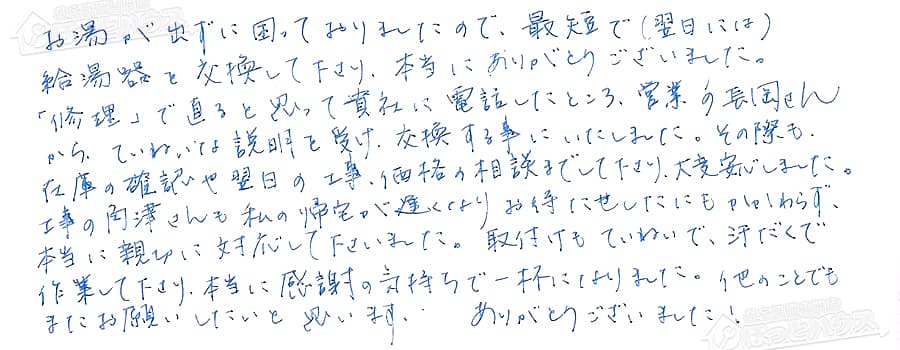 お湯が出ずに困っておりましたので、最短で(翌日には)
給湯器を交換して下さり、本当にありがとうございました。
「修理」で直ると思って貴社に電話したところ、営業の長岡さん
から、ていねいな説明を受け、交換する事にいたしました。その際も、
在庫の確認や翌日の工事、価格の相談までして下さり、大変安心しました。
工事の角澤さんも私の帰宅が遅くなりお待たせしたにもかかわらず、
本当に親切に対応して下さいました。取付けもていねいで、汗だくで
作業して下さり、本当に感謝の気持ちで一杯になりました。他のことでも
またお願いしたいと思います。 ありがとうございました!